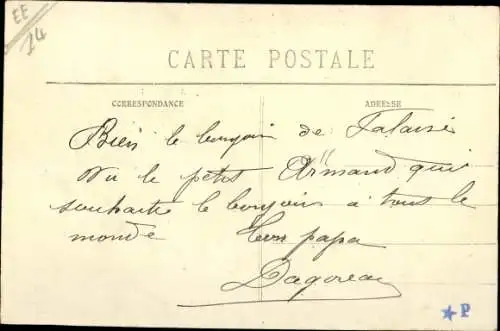 EE
14
CARTE POSTALE
CORRESPONDANCE
ADRESSE
Bien le bonjoir de Falaise
Du le petit Armand qui
souhaite le bonjoir à tout le
monde
papa
P